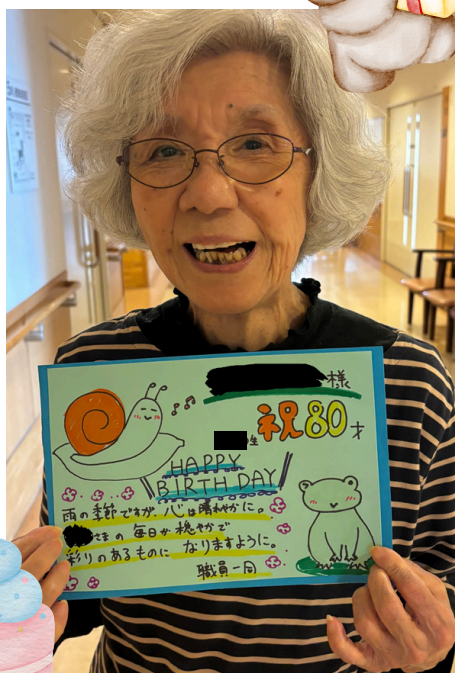 様
祝80才
生
HAPPY
BIRTHDAY
雨の季節ですが、心は晴れやかに。
さまの毎日が穏やかで
彩りのあるものになりますように。
職員一同